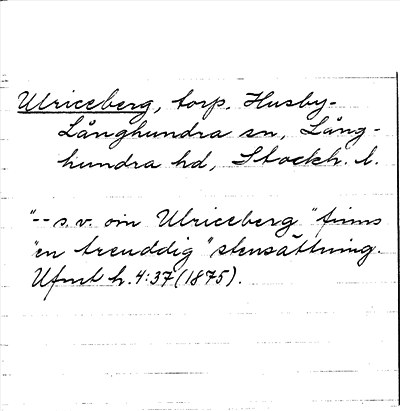 Ulriceberg, torp. Husby-
Långhundra sn, Lång-
hundra hd, Stockh. l.
"-- s.v. om Ulriceberg" finns
"en treuddig" stensättning.
Ufmt h. 4:37 (1875).